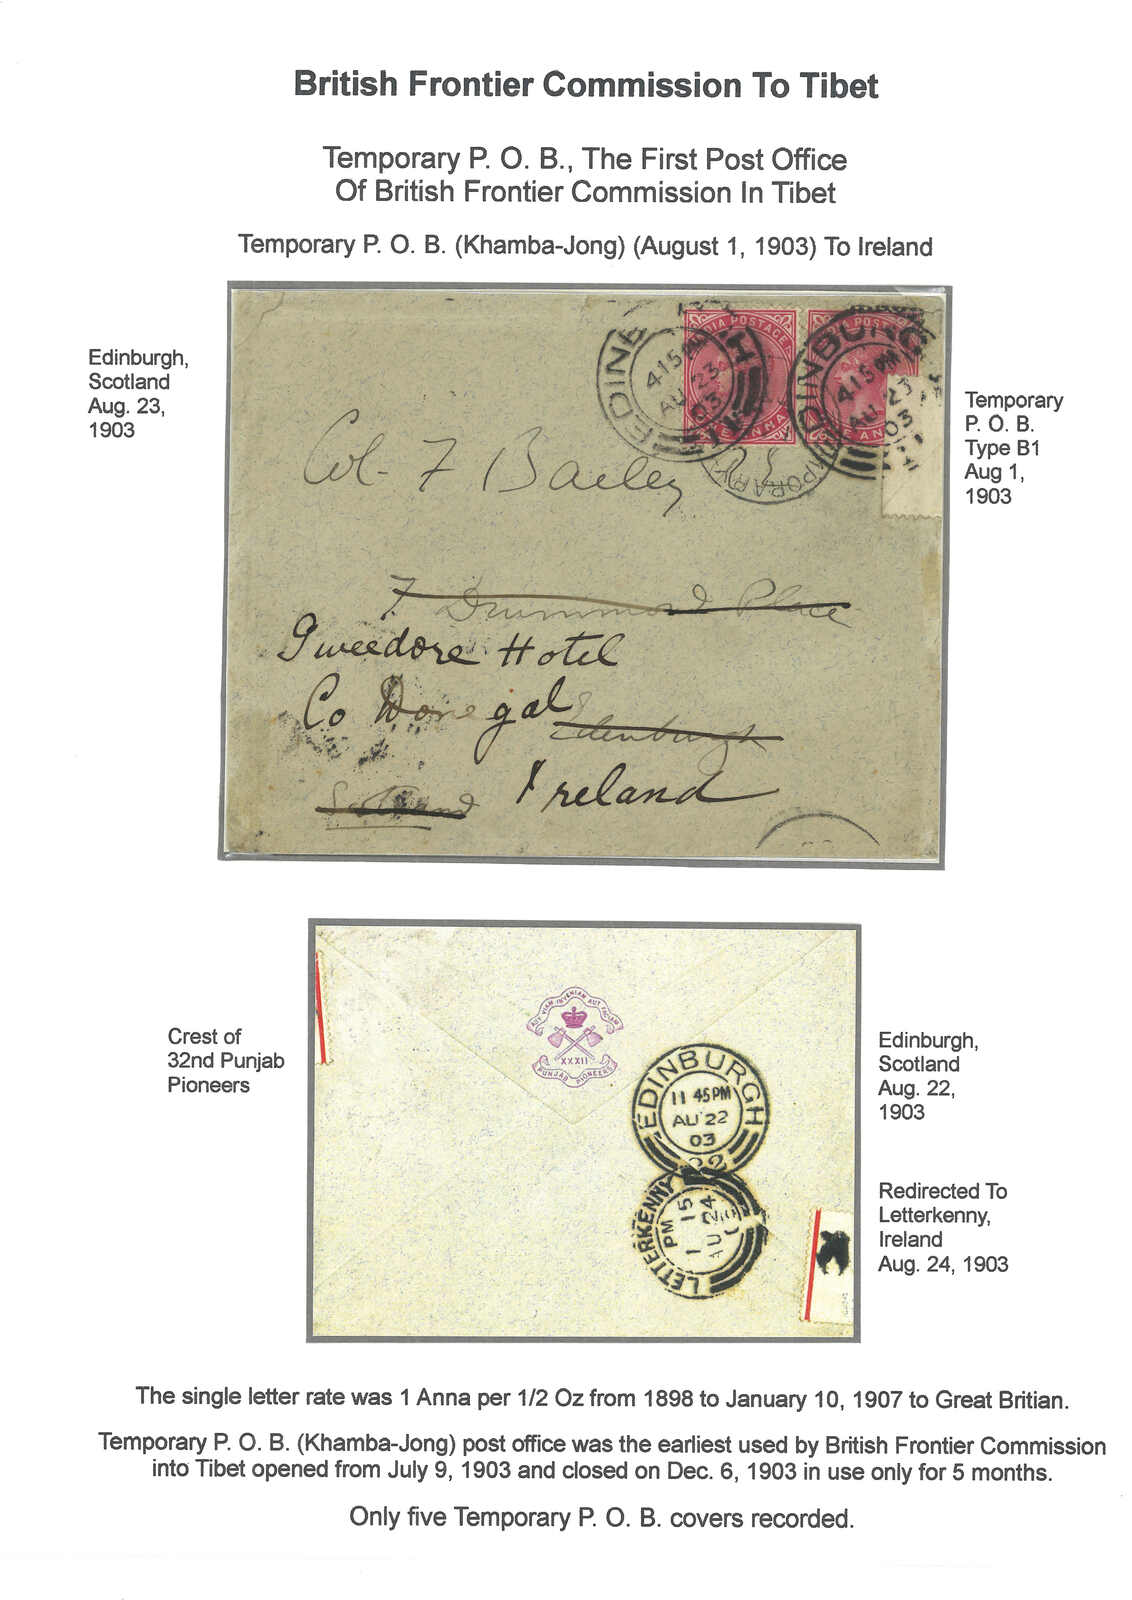 British Frontier Commission To Tibet
Temporary P. O. B., The First Post Office
Of British Frontier Commission In Tibet
Temporary P. O. B. (Khamba-Jong) (August 1, 1903) To Ireland
Edinburgh,
Scotland
Aug. 23,
1903
EDINB
4 15 PM
AU 23
03
INDIA POSTAGE
ONE ANNA
EDINBURG
4 15 PM
AU 23
03
TEMPORARY
Temporary
P. O. B.
Type B1
Aug 1,
1903
Col. F Bailey
7 Drummond Place
Gweedore Hotel
Co Donegal
Edenburgh
Scotland
Ireland
Crest of
32nd Punjab
Pioneers
AUT VIAM INVENIAM AUT FACIAM
XXXII
PUNJAB PIONEERS
EDINBURGH
11 45 PM
AU 22
03
22
LETTERKENNY
1 15
PM
AU 24
Edinburgh,
Scotland
Aug. 22,
1903
Redirected To
Letterkenny,
Ireland
Aug. 24, 1903
The single letter rate was 1 Anna per 1/2 Oz from 1898 to January 10, 1907 to Great Britian.
Temporary P. O. B. (Khamba-Jong) post office was the earliest used by British Frontier Commission
into Tibet opened from July 9, 1903 and closed on Dec. 6, 1903 in use only for 5 months.
Only five Temporary P. O. B. covers recorded.